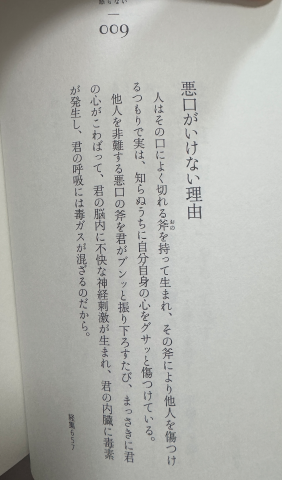 怒らない
009
悪口がいけない理由
人はその口によく切れる斧を持って生まれ、その斧により他人を傷つけ
おの
るつもりで実は、知らぬうちに自分自身の心をグサッと傷つけている。
他人を非難する悪口の斧を君がブンッと振り下ろすたび、まっさきに君
の心がこわばって、君の脳内に不快な神経刺激が生まれ、君の内臓に毒素
が発生し、君の呼吸には毒ガスが混ざるのだから。
経集657